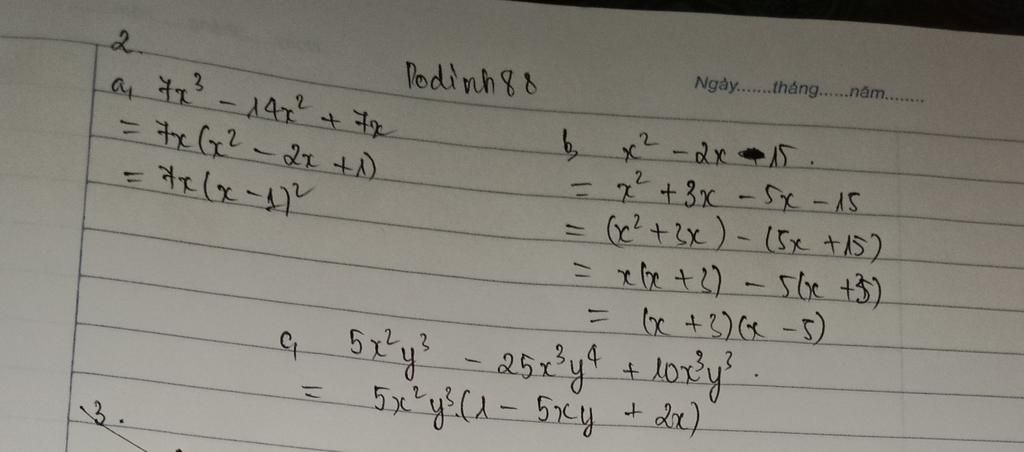 2.
Dodinh88
Ngày.......tháng......năm........
a, 7x³ - 14x² + 7x
= 7x(x² - 2x + 1)
= 7x(x - 1)²
b, x² - 2x - 15.
= x² + 3x - 5x - 15
= (x² + 3x) - (5x + 15)
= x(x + 3) - 5(x + 3)
= (x + 3)(x - 5)
c, 5x²y³ - 25x³y⁴ + 10x³y³.
= 5x²y³.(1 - 5xy + 2x)
3.